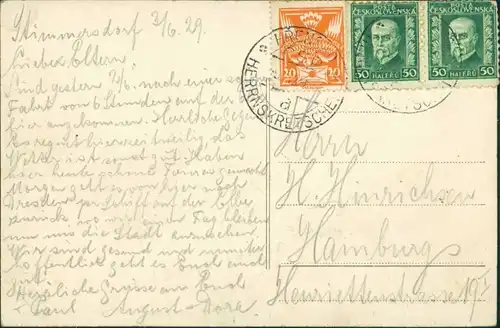 Stimmersdorf 3/6.29.
Lieben Eltern.
Sind gestern 2/6. nach einer
Fahrt von 6 Stunden auf der
hier angekommen. Herrliche Gegend
es regnet hier zeitweilig das
Wetter ist sonst gut. Haben
hier heute schöne Touren gemacht
Morgen geht es von hier nach
Dresden per Schiff auf der Elbe
zurück wo wir einen Tag bleiben
um uns die Stadt anzusehen.
Wir sind gesund und munter
hoffentlich geht es Euch auch
Herzliche Grüsse an Euch
Paul August - Dora.
20
ČESKOSLOVENSKO
50 HALÉŘŮ 50
ČESKOSLOVENSKO
50 HALÉŘŮ 50
HERRNSKRETSCHEN
a
Herrn
H. Hinrichsen
Hamburg
Henriettenstrasse 19 I